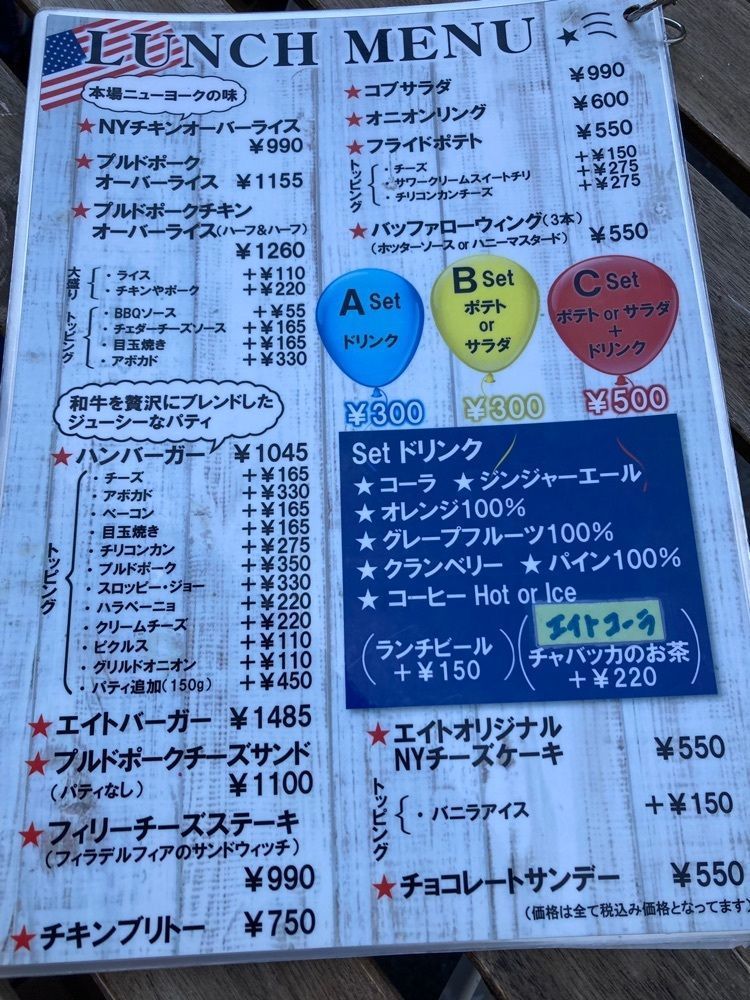 LUNCH MENU
本場ニューヨークの味
★NYチキンオーバーライス
¥990
★プルドポーク
オーバーライス ¥1155
★プルドポークチキン
オーバーライス(ハーフ&ハーフ)
¥1260
大盛り
・ライス +¥110
・チキンやポーク +¥220
トッピング
・BBQソース +¥55
・チェダーチーズソース +¥165
・目玉焼き +¥165
・アボカド +¥330
和牛を贅沢にブレンドした
ジューシーなパティ
★ハンバーガー ¥1045
トッピング
・チーズ +¥165
・アボカド +¥330
・ベーコン +¥165
・目玉焼き +¥165
・チリコンカン +¥275
・プルドポーク +¥350
・スロッピー・ジョー +¥330
・ハラペーニョ +¥220
・クリームチーズ +¥220
・ピクルス +¥110
・グリルドオニオン +¥110
・パティ追加(150g) +¥450
★エイトバーガー ¥1485
★プルドポークチーズサンド
(パティなし) ¥1100
★フィリーチーズステーキ
(フィラデルフィアのサンドウィッチ)
¥990
★チキンブリトー ¥750
★コブサラダ ¥990
★オニオンリング ¥600
★フライドポテト ¥550
トッピング
・チーズ +¥150
・サワークリームスイートチリ +¥275
・チリコンカンチーズ +¥275
★バッファローウィング(3本) ¥550
(ホッターソース or ハニーマスタード)
A Set
ドリンク
¥300
B Set
ポテト
or
サラダ
¥300
C Set
ポテト or サラダ
+
ドリンク
¥500
Set ドリンク
★コーラ ★ジンジャーエール
★オレンジ100%
★グレープフルーツ100%
★クランベリー ★パイン100%
★コーヒー Hot or Ice
(ランチビール
+¥150)
エイトコーラ
(チャバツカのお茶
+¥220)
★エイトオリジナル
NYチーズケーキ ¥550
トッピング
・バニラアイス +¥150
★チョコレートサンデー ¥550
(価格は全て税込み価格となってます)